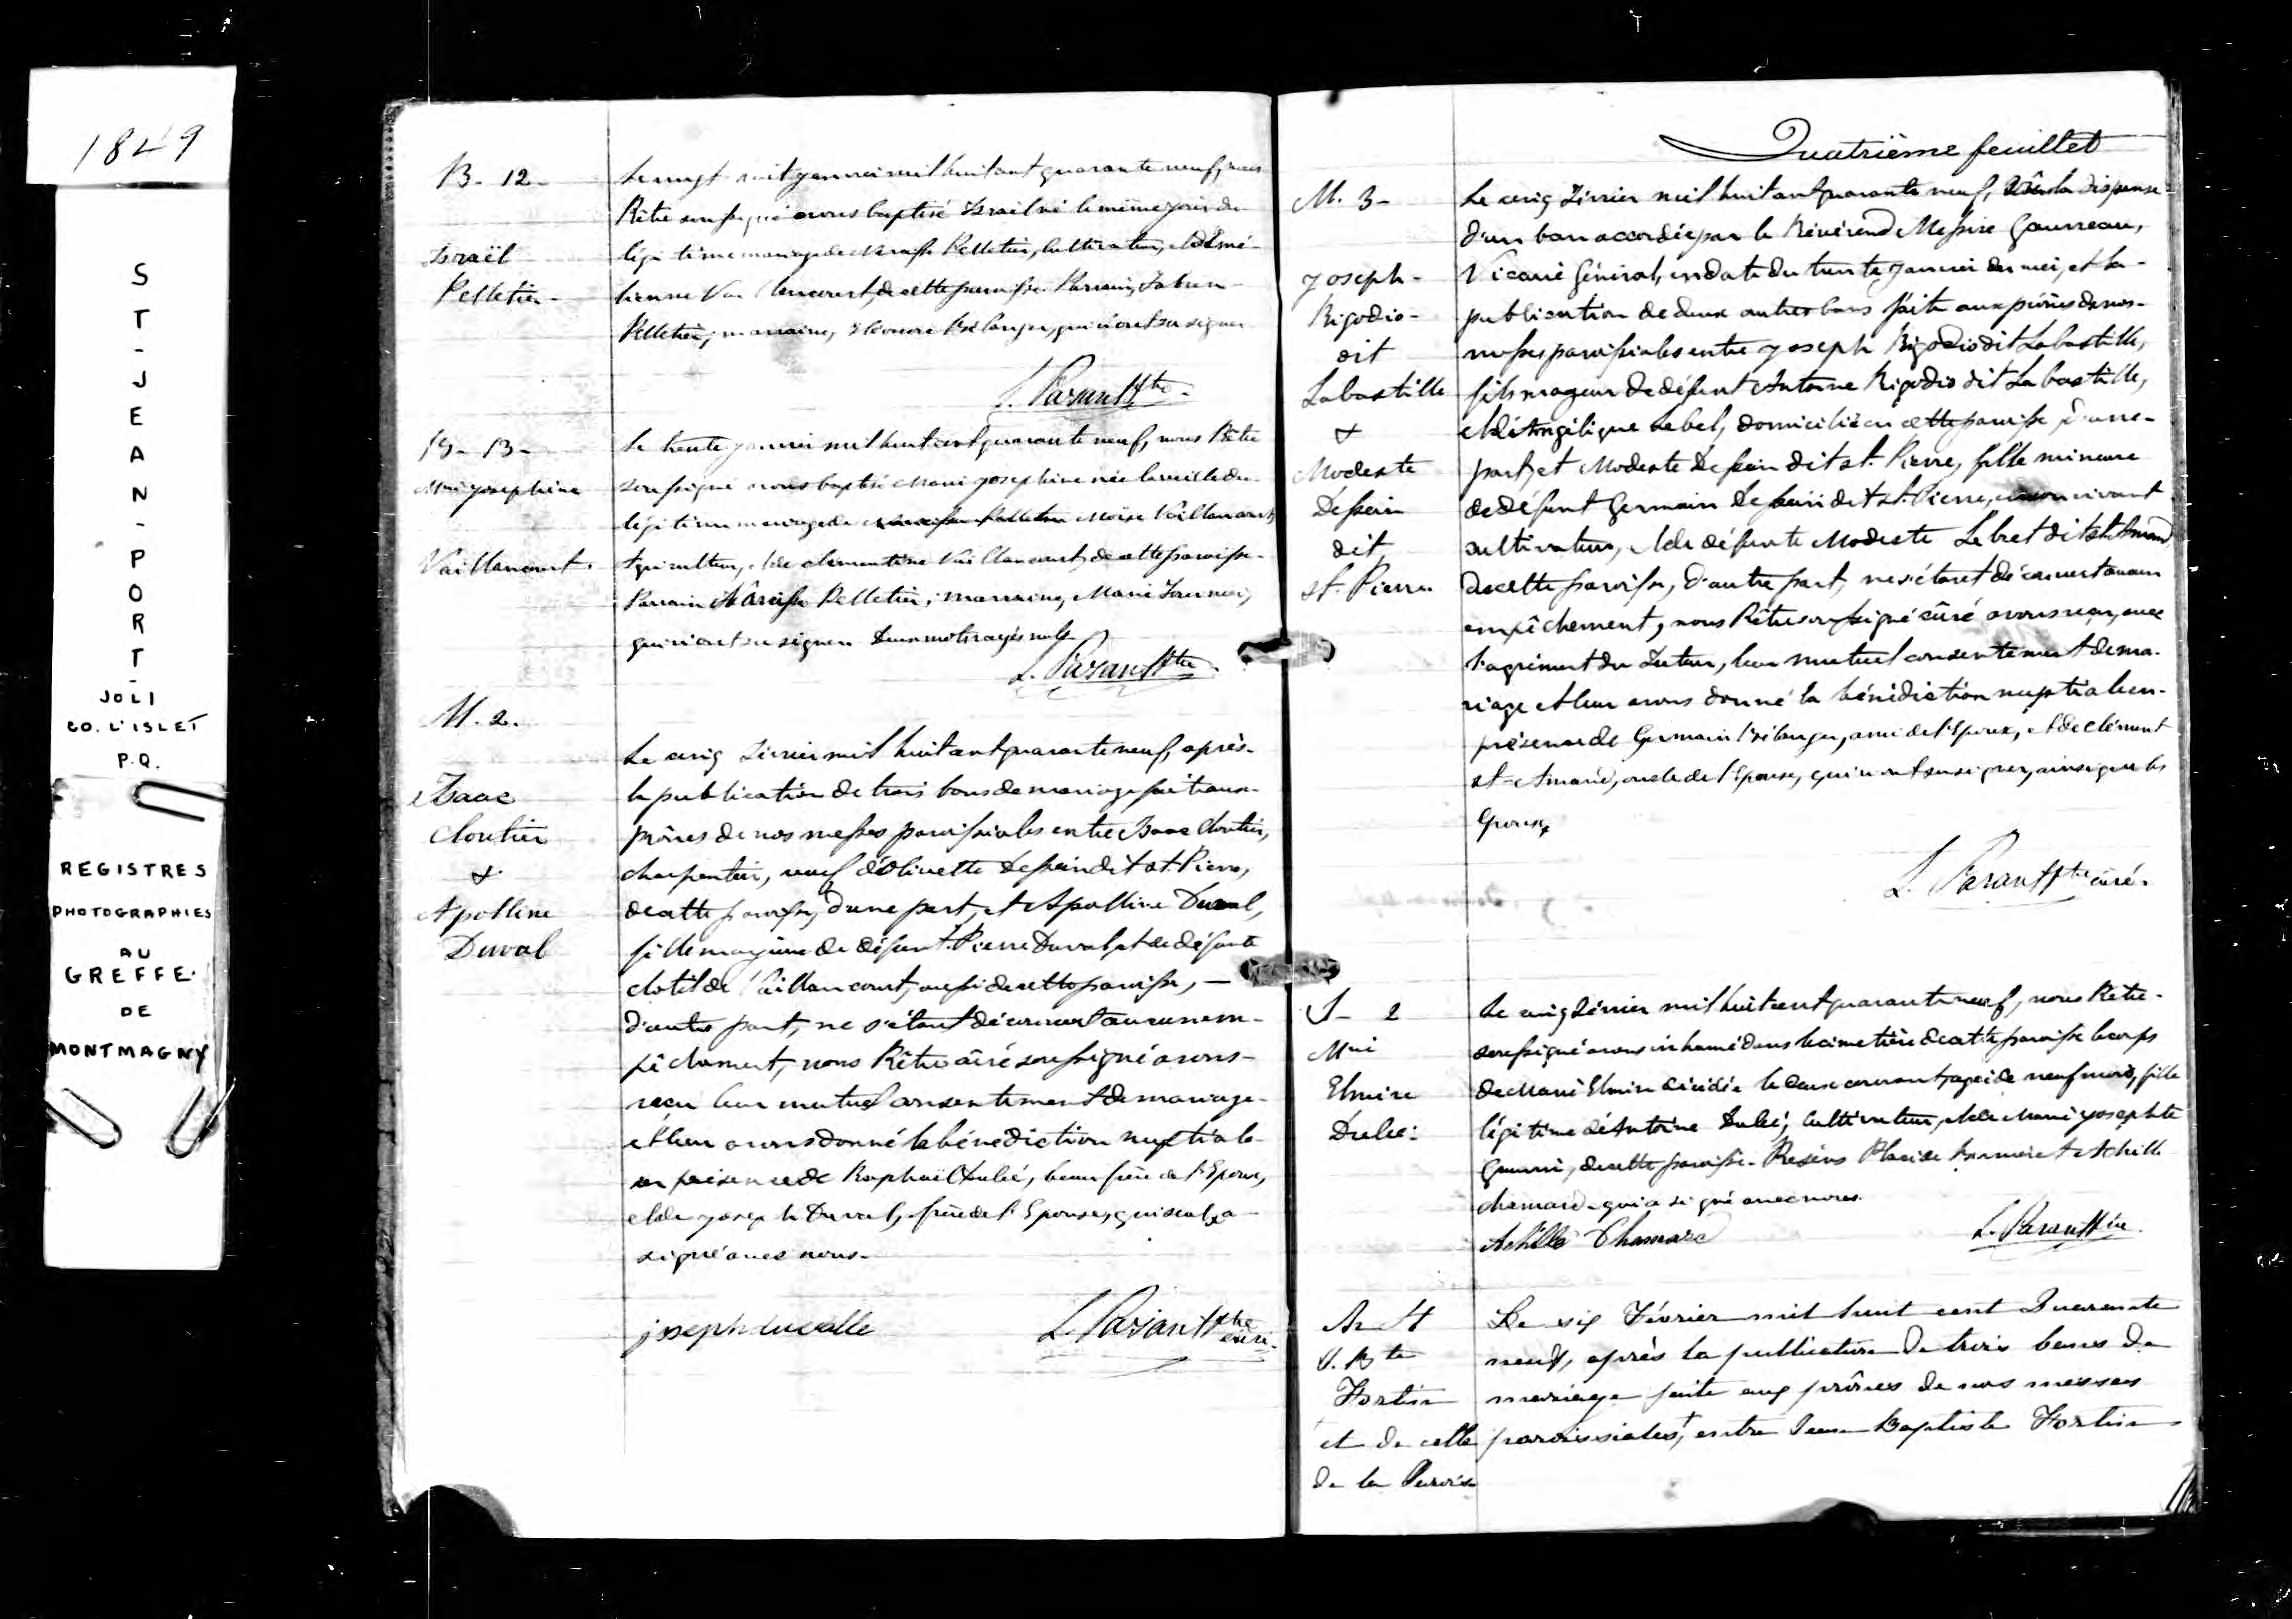 1849
ST-JEAN-PORT-
JOLI
CO. L'ISLET
P.Q.
REGISTRES
PHOTOGRAPHIES
AU
GREFFE
DE
MONTMAGNY
B. 12.
Israël
Pelletier
Le vingt huit janvier mil huit cent quarante neuf, nous
Prêtre soussigné avons baptisé Israël né le même jour du
légitime mariage de Narcisse Pelletier, cultivateur, et
Vaillancourt, de cette paroisse. Parrain,
Pelletier; marraine, Eléonore Bélanger, qui n'ont su signer
L. Parant Ptre.
B. 13.
Marie Josephine
Vaillancourt.
Le trente janvier mil huit cent quarante neuf, nous Prêtre
soussigné avons baptisé Marie Josephine née la veille du
légitime mariage de Narcisse Pelletier Moïse Vaillancourt,
Agriculteur, et de Clementine Vaillancourt, de cette paroisse.
Parrain Narcisse Pelletier; marraine, Marie
qui n'ont su signer Deux mots rayés nuls
L. Parant Ptre.
M. 2.
Isaac
Cloutier
&
Apolline
Duval
Le cinq Février mil huit cent quarante neuf, après
la publication de trois bans de mariage faite aux
prônes de nos messes paroissiales entre Isaac Cloutier,
charpentier, veuf d'Olivette Dessein dit St. Pierre,
de cette paroisse, d'une part, et Apolline Duval,
fille majeure de défunt Pierre Duval et de défunte
Clotilde Vaillancourt, aussi de cette paroisse, —
d'autre part, ne s'étant découvert aucun em-
pêchement, nous Prêtre curé soussigné avons
reçu leur mutuel consentement de mariage
et leur avons donné la bénédiction nuptiale
en présence de Raphaël Dubé, beau frère de l'Epoux,
et de Joseph Duval, frère de l'Epouse, qui seul a
signé avec nous.
joseph duvalle
L. Parant Ptre
curé.
Quatrième feuillet
M. 3
Joseph
Rigodio
dit
Labastille
&
Modeste
Dessein
dit
St. Pierre
Le cinq Février mil huit cent quarante neuf, vû la dispense
d'un ban accordée par le Révérend Messire Gauvreau,
Vicaire Général, en date du trente janvier dernier, et la
publication de deux autres bans faite aux prônes de nos
messes paroissiales entre Joseph Rigodio dit Labastille,
fils majeur de défunt Antoine Rigodio dit Labastille,
et d'Angélique Lebel, domicilié en cette paroisse, d'une
part, et Modeste Dessein dit St. Pierre, fille mineure
de défunt Germain Dessein dit St. Pierre, en son vivant
cultivateur, et de défunte Modeste Lebret dit St. Amand
de cette paroisse, d'autre part, ne s'étant découvert aucun
empêchement, nous Prêtre soussigné curé avons reçu, avec
l'agrément du Tuteur, leur mutuel consentement de ma-
riage et leur avons donné la bénédiction nuptiale en
présence de Germain Bélanger, ami de l'Epoux, et de Clément
St. Amand, oncle de l'Epouse, qui n'ont su signer, ainsi que les
Epoux,
L. Parant Ptre curé.
S. 2
Marie
Elmire
Dubé.
Le cinq Février mil huit cent quarante neuf, nous Prêtre
soussigné avons inhumé dans le cimetière de cette paroisse le corps
de Marie Elmire décédée le deux courant, agée de neuf mois, fille
légitime d'Antoine Dubé, cultivateur, et de Marie Josephte
de cette paroisse. Présens Placide et Achille
Chamard qui a signé avec nous.
Achille Chamard
L. Parant Ptre.
M. 4
J. Bte
Fortin
Le six Février mil huit cent Quarante
neuf, après la publication de trois bans de
mariage faite aux prônes de nos messes
paroissiales+, entre Jean Baptiste Fortin
+ et de celle
de la Paroisse